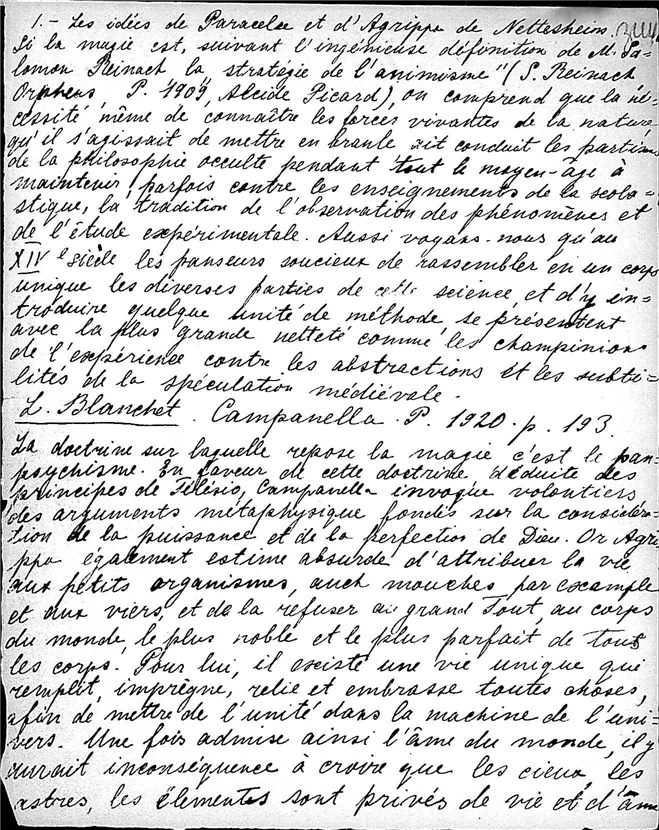 1.- Les idées de Paracelse et d'Agrippa de Nettesheim.
Si la magie est, suivant l'ingénieuse définition de M. Sa-
lomon Reinach la stratégie de l'animisme" (S. Reinach
Orpheus, P. 1909, Alcide Picard), on comprend que la né-
cessité même de connaître les forces vivantes de la nature
qu'il s'agissait de mettre en branle ait conduit les partisans
de la philosophie occulte pendant tout le moyen-âge à
maintenir, parfois contre les enseignements de la scola-
stique, la tradition de l'observation des phénomènes et
de l'étude expérimentale. Aussi voyons-nous qu'au
XIV e siècle les panseurs soucieux de rassembler en un corps
unique les diverses parties de cette science et d'y in=
troduire quelque unité de méthode, se présentent
avec la plus grande netteté comme les champinions
de l'expérience contre les abstractions et les subti-
lités de la spéculation médiévale.
L. Blanchet. Campanella. P. 1920. p. 193.
La doctrine sur laquelle repose la magie c'est le pan-
psychisme. En faveur de cette doctrine, déduite des
principes de Télésio, Campanella invoque volontiers
des arguments métaphysique fondés sur la considéra-
tion de la puissance et de la perfection de Dieu. Or Agri-
ppa également estime absurde d'attribuer la vie
aux petits organismes, auch mouches par excample
et aux viers, et de la refuser au grand Tout, au corps
du monde, le plus noble et le plus parfait de tous
les corps. Pour lui, il existe une vie unique qui
remplit, imprègne, relie et embrasse toutes choses,
afin de mettre de l'unité dans la machine de l'uni-
vers. Une fois admise ainsi l'âme du monde, il y
aurait inconséquence à croire que les cieux, les
astres, les élements sont privés de vie et d'âme